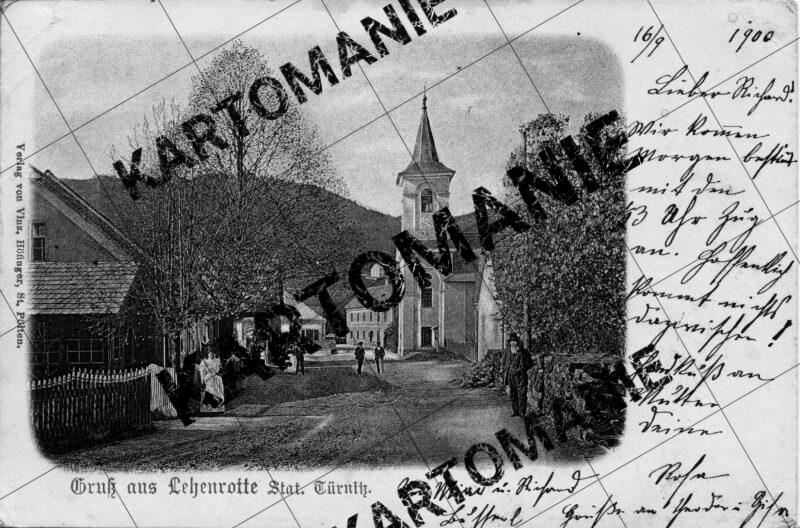 16/9 1900
Lieber Richard!
Wir kommen
Morgen bestimmt
mit den
3 Uhr Zug
an. Hoffentlich
kommt nichts
dazwischen!
Handkuß an
Mutter
Deine
Rosa
u. Richard
Grüße an Theodor u.
Verlag von Vinz. Höfinger, St. Pölten.
Gruß aus Lehenrotte Stat. Türnitz.
KARTOMANIE
KARTOMANIE
KARTOMANIE
KARTOMANIE
KARTOMANIE
KARTOMANIE